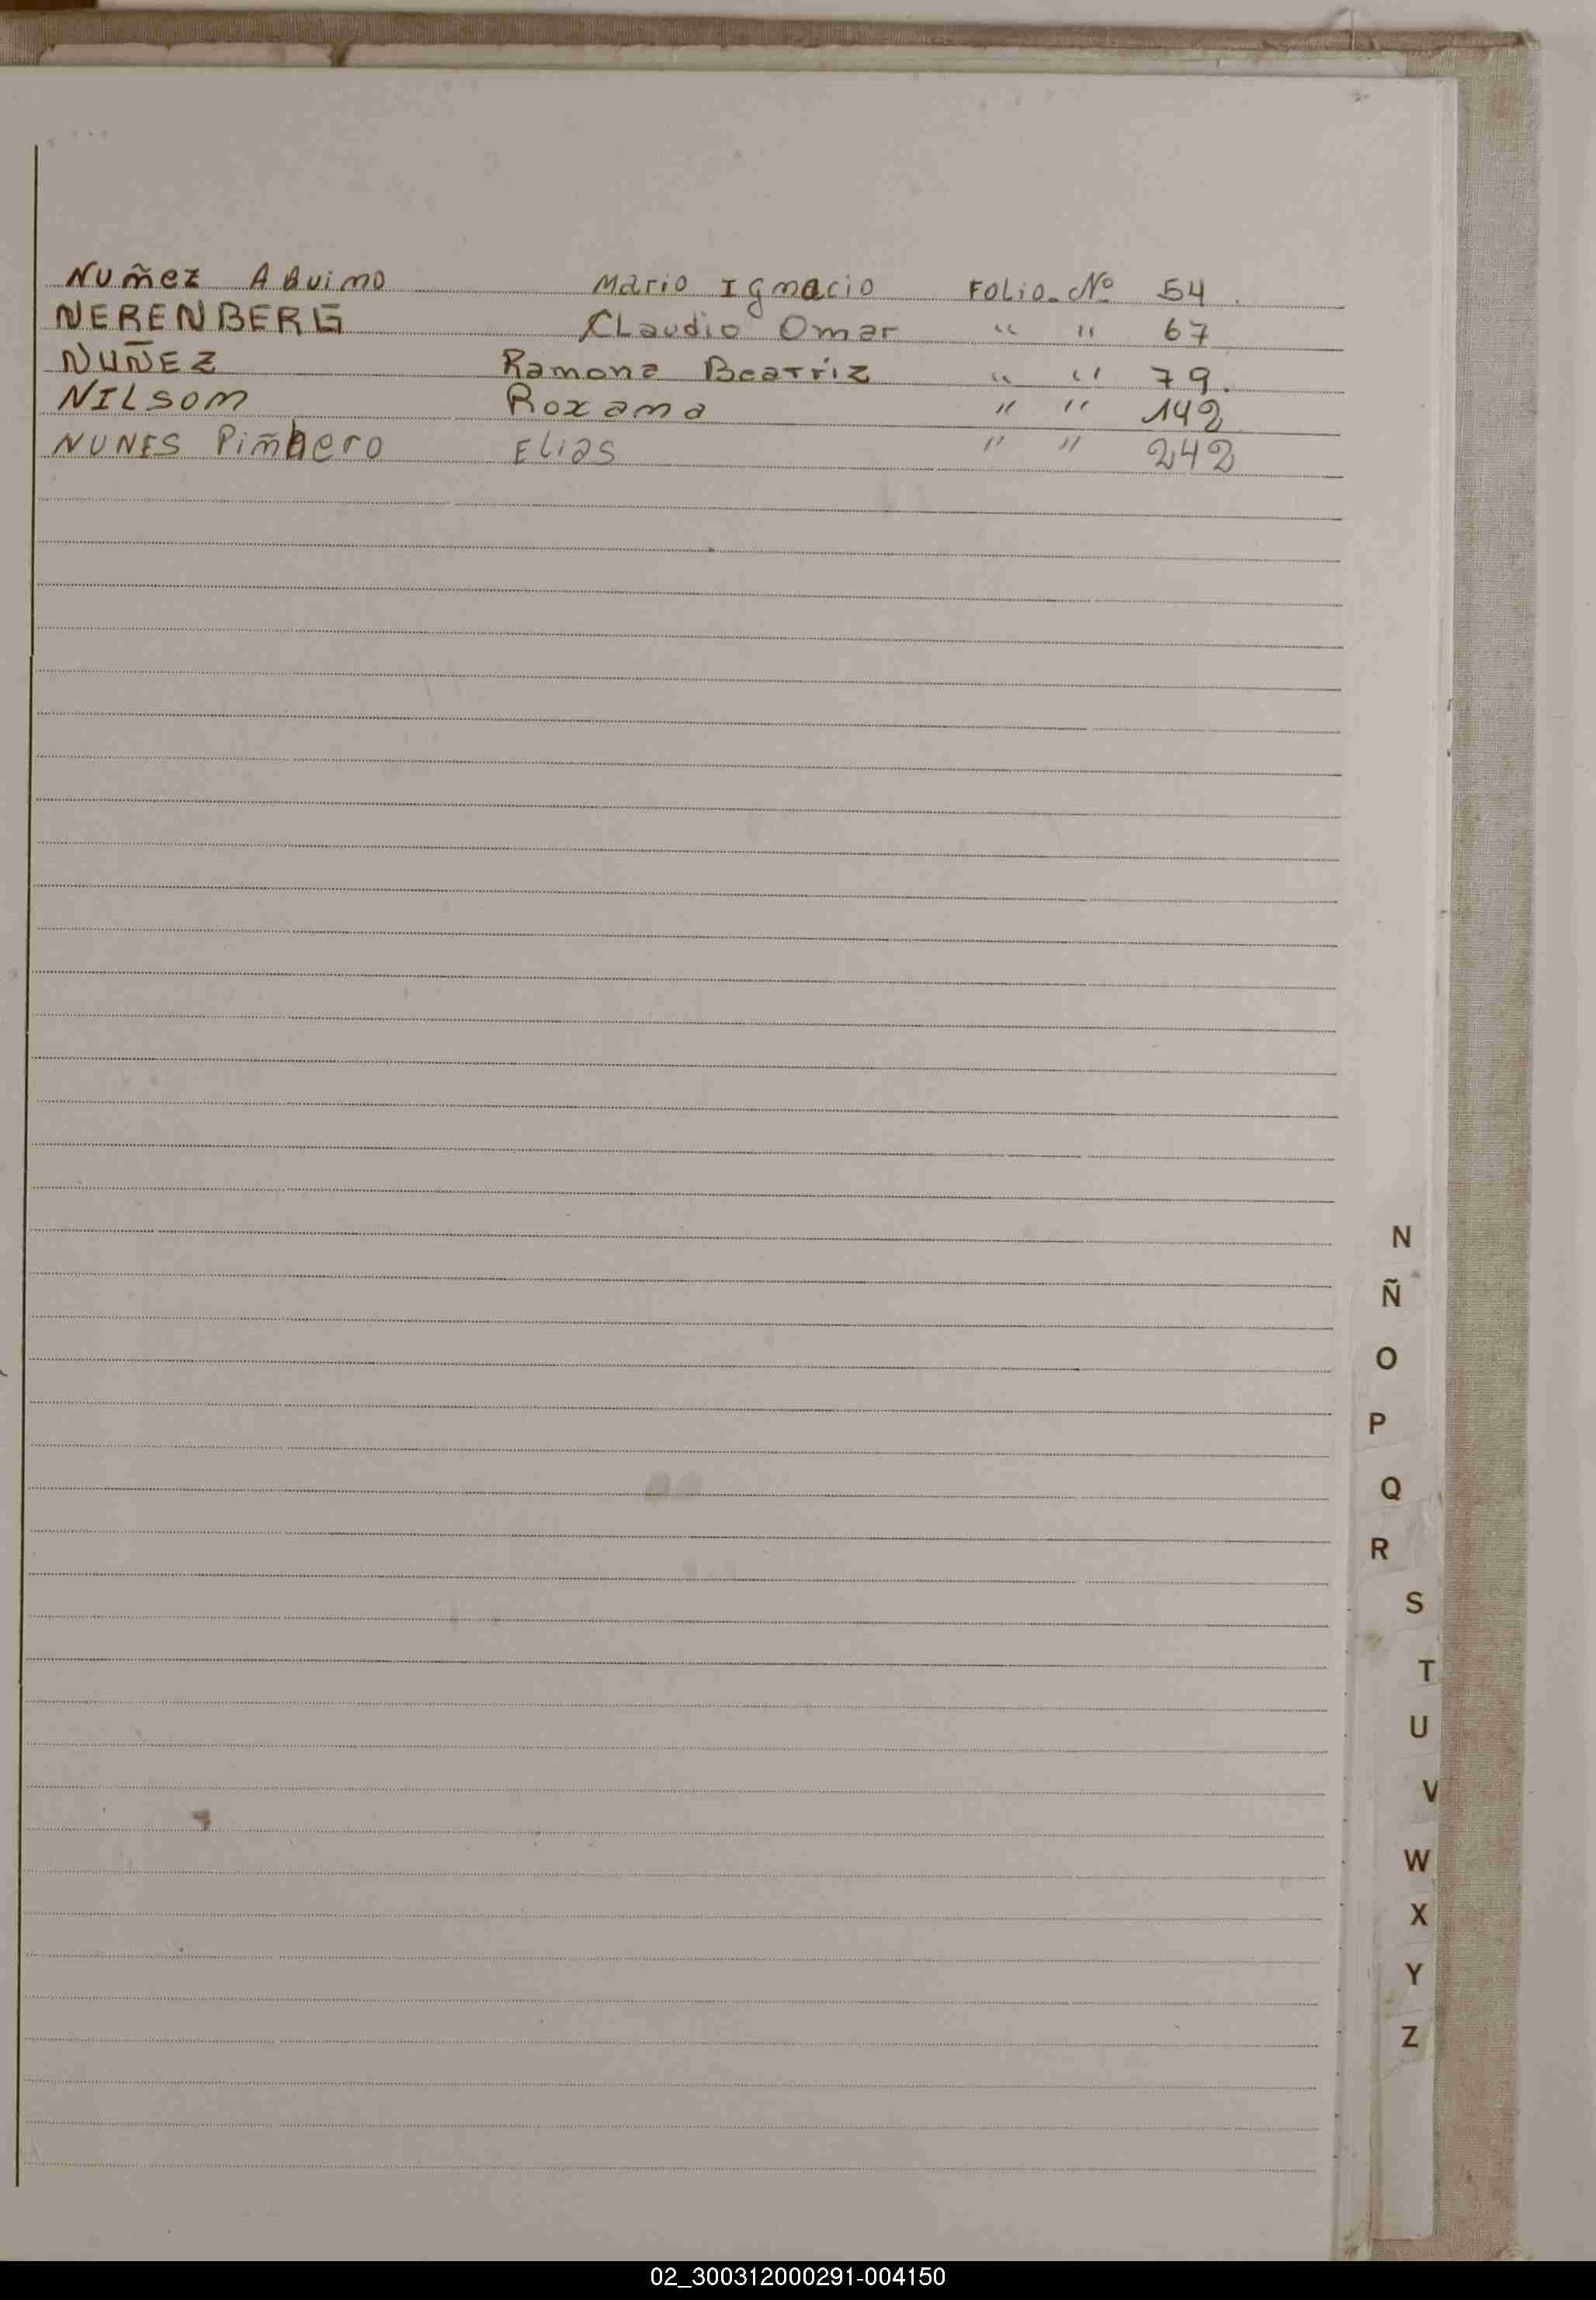 Nuñez Aquimo Mario Ignacio Folio Nº 54.
NERENBERG Claudio Omar " " 67
NUÑEZ Ramona Beatriz " " 79.
NILSOM Roxama " " 142
NUNES Piñhero Elias " " 242
N
Ñ
O
P
Q
R
S
T
U
V
W
X
Y
Z
02_300312000291-004150